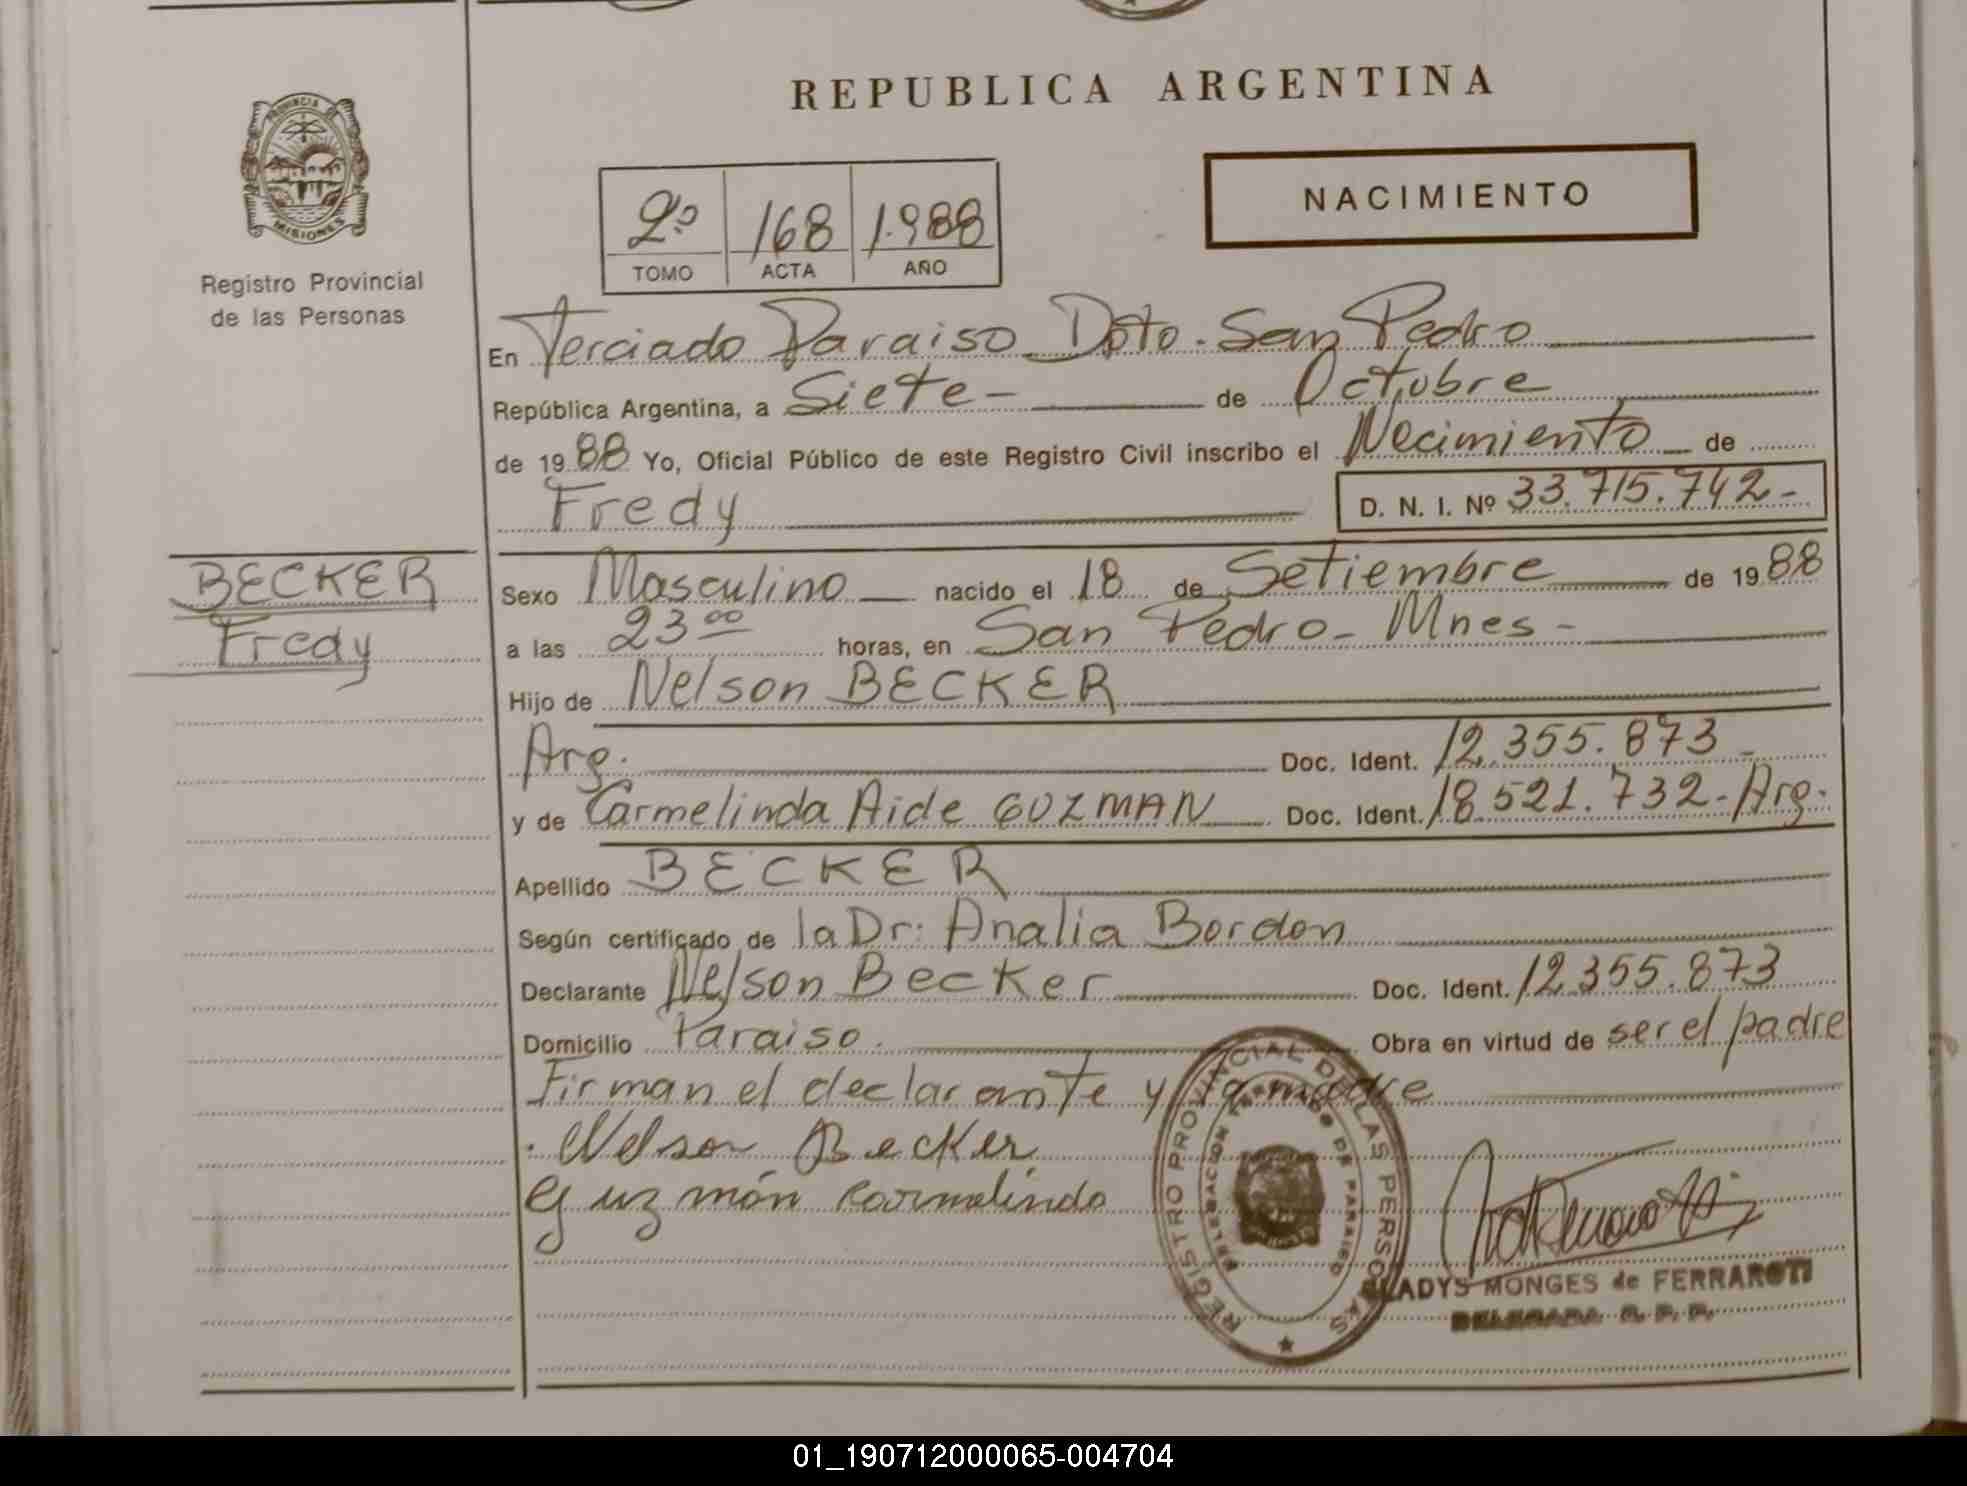 REPUBLICA ARGENTINA
PROVINCIA DE MISIONES
Registro Provincial
de las Personas
2º 168 1.988
TOMO ACTA AÑO
NACIMIENTO
En Terciado Paraiso Dpto. San Pedro
República Argentina, a Siete - de Octubre
de 1988 Yo, Oficial Público de este Registro Civil inscribo el Nacimiento de
Fredy D. N. I. Nº 33.715.742-
BECKER
Fredy
Sexo Masculino nacido el 18 de Setiembre de 1988
a las 23 00 horas, en San Pedro - Mnes -
Hijo de Nelson BECKER
Arg. Doc. Ident. 12.355.873 -
y de Carmelinda Aide GUZMAN Doc. Ident. 18.521.732- Arg.
Apellido BECKER
Según certificado de la Dr: Analia Bordon
Declarante Nelson Becker Doc. Ident. 12.355.873
Domicilio Paraiso. Obra en virtud de ser el padre
Firman el declarante y la madre
Nelson Becker
Guzmán Carmelinda
REGISTRO PROVINCIAL DE LAS PERSONAS
DE PARAISO
GLADYS MONGES de FERRAROTI
DELEGADA R. P. P.
01_190712000065-004704